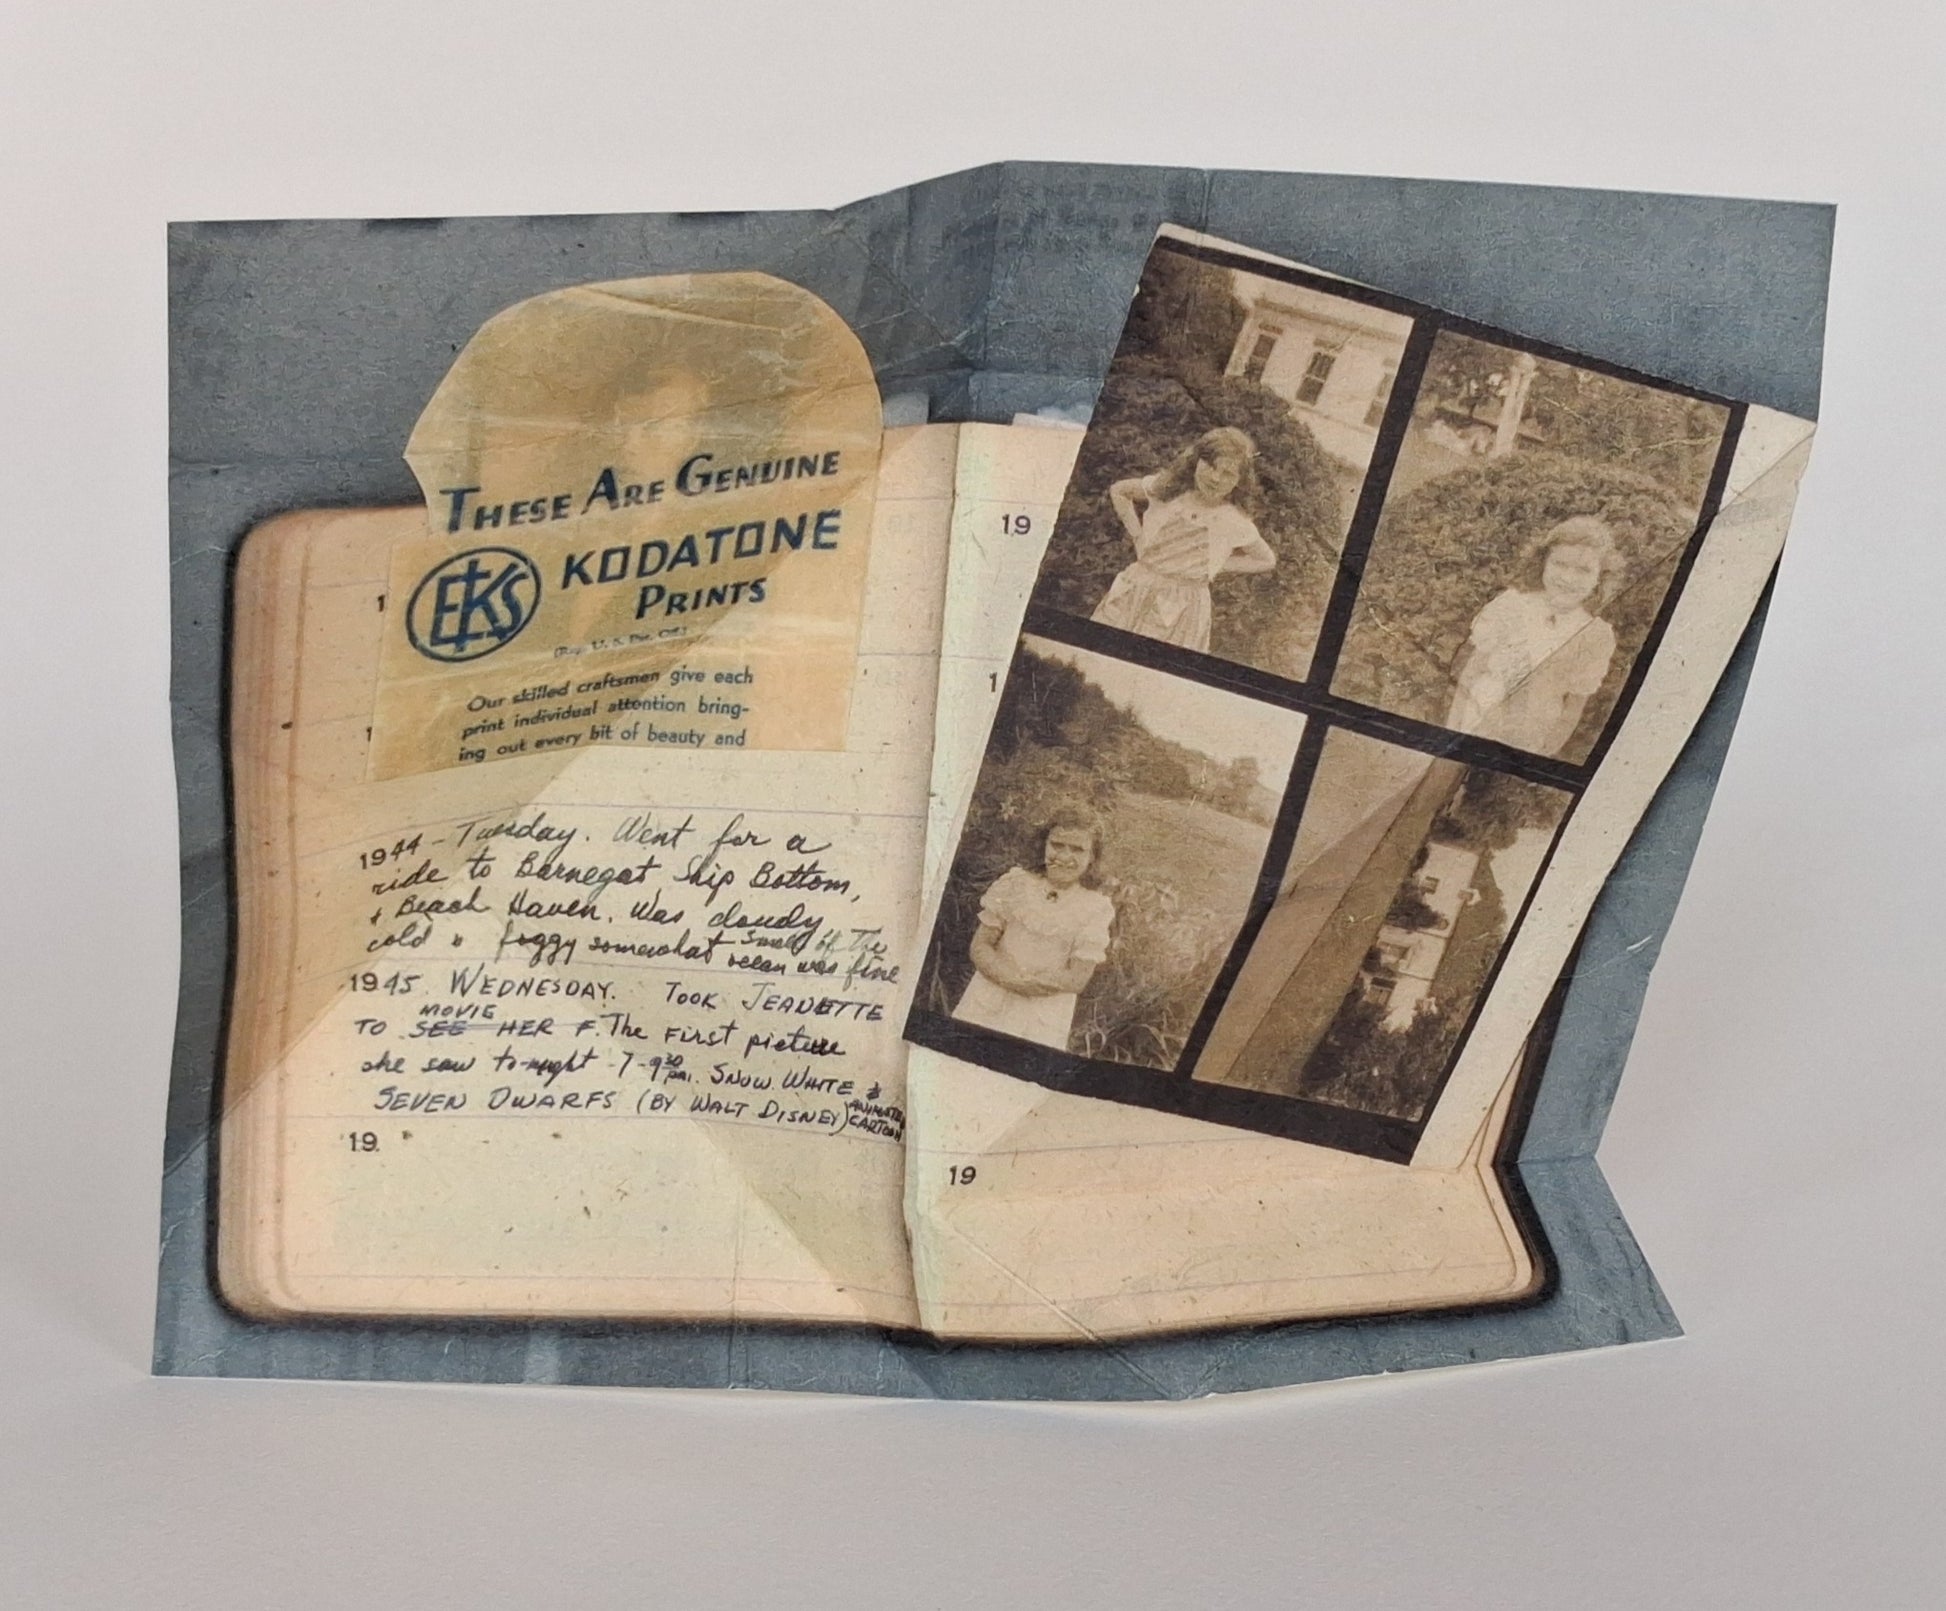 THESE ARE GENUINE
EKS KODATONE
PRINTS
(Reg. U. S. Pat. Off.)
Our skilled craftsmen give each
print individual attention bring-
ing out every bit of beauty and
1
1
1944 - Tuesday. Went for a
ride to Barnegat, Ship Bottom,
+ Beach Haven. Was cloudy
cold & foggy somewhat Smell of the
ocean was fine
1945. WEDNESDAY. TOOK JEANETTE
MOVIE
TO SEE HER F. The First picture
she saw to-night -7-9:30 pm. SNOW WHITE &
SEVEN DWARFS (BY WALT DISNEY) ANIMATED
CARTOON
19
19
1
19